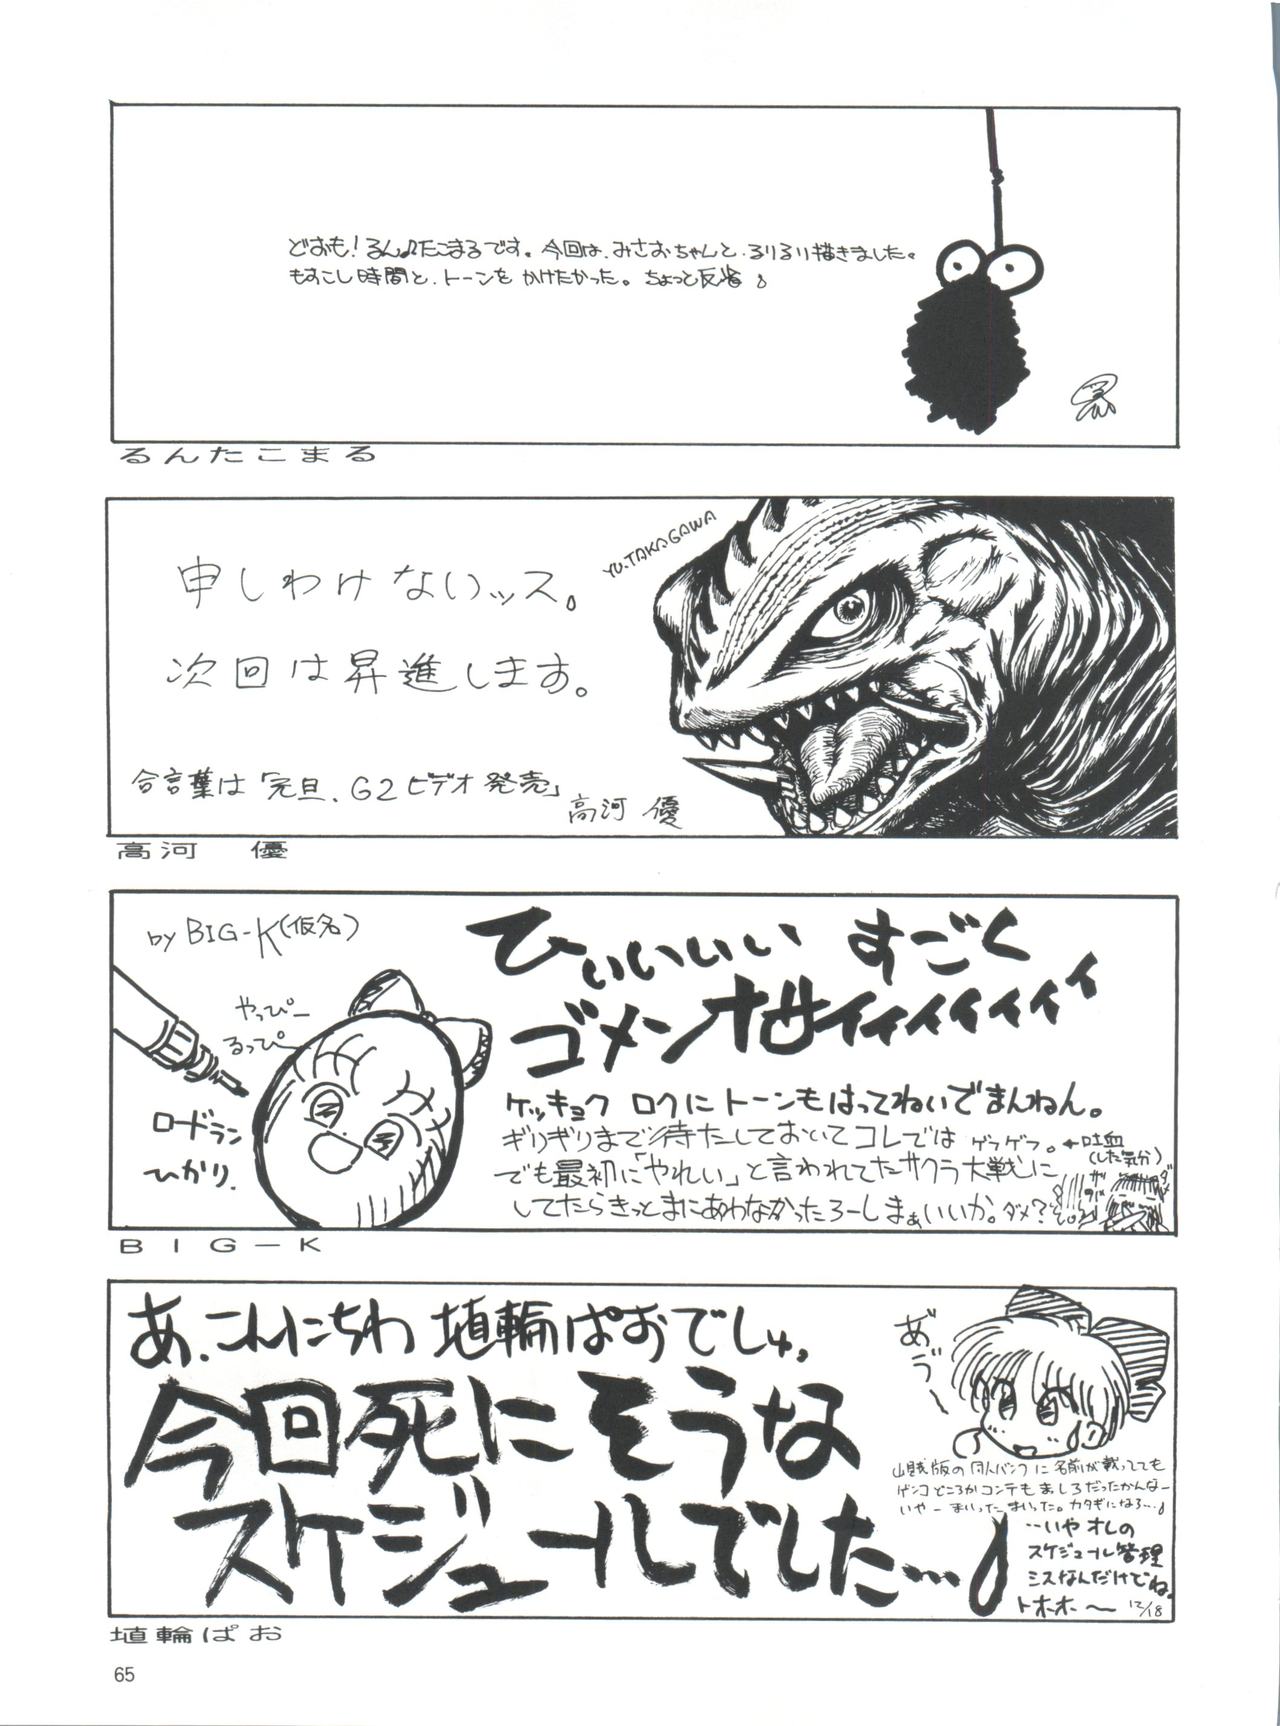 どおも！るん♪たこまるです。今回は、みさおちゃんと、るりるり描きました。
もすこし時間と、トーンを かけたかった。ちょっと反省♪
るんたこまる
YU.TAKAGAWA
申しわけないッス。
次回は昇進します。
合言葉は「元旦、G2ビデオ発売」
高河 優
高河 優
by BIG-K(仮名)
ひぃぃぃぃぃ すごく
ゴメンナサイィィィィィィィ
やっぴー
るっぴー
ロードラン
ひかり.
ケッキョク ロクにトーンもはってねいでまんねん。
ギリギリまで待たしておいてコレでは ゲフゲフ。←吐血
(した気分)
でも最初に「やれい」と言われてたサクラ大戦に
してたらきっとまにあわなかったろーしまぁいいか。ダメ？
BIG-K
あ、こんにちわ 埴輪ぱおでしゅ,
今回死にそうな
スケジュールでした…♪
あ゛
う゛ー
山賊版の同人バンクに名前が載ってても
ゲンコどころかコンテもましろだったかんなー
いやー まいったまいった。カタギになろ…♪
…いや オレの
スケジュール管理
ミスなんだけどね。
トホホ〜 12/18
埴輪ぱお
65